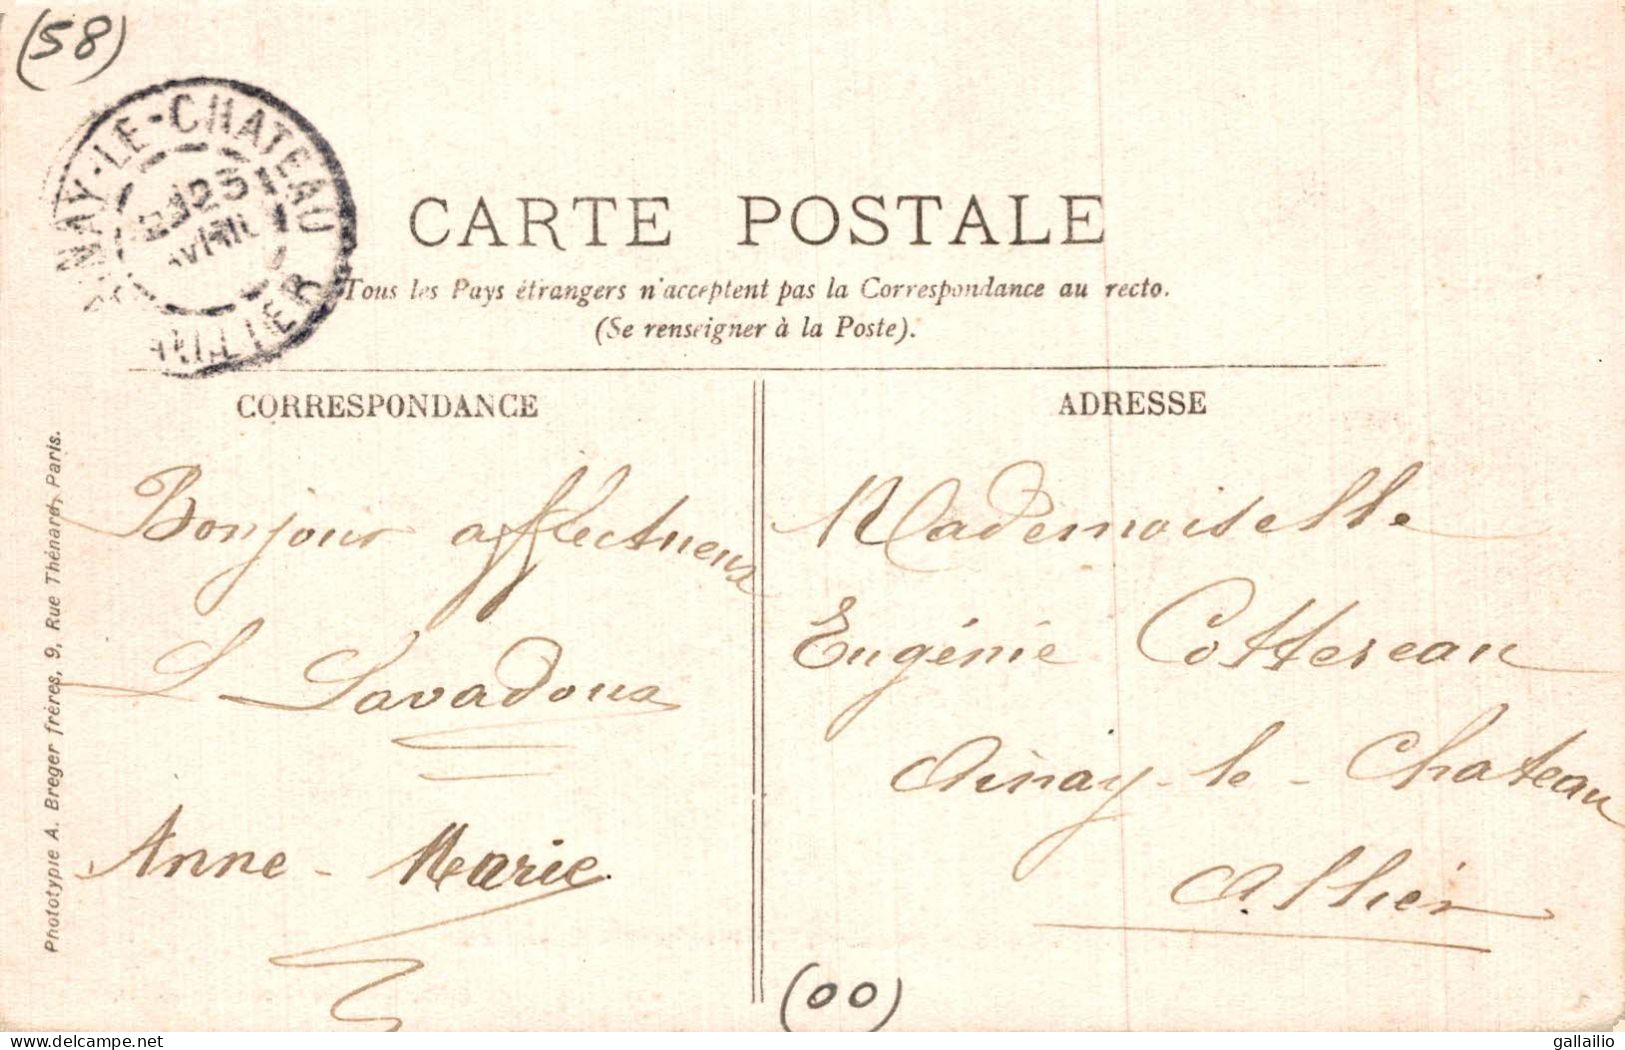 (58)
AINAY-LE-CHATEAU
25
AVRIL
ALLIER
CARTE POSTALE
Tous les Pays étrangers n'acceptent pas la Correspondance au recto.
(Se renseigner à la Poste).
CORRESPONDANCE
Bonjour affectueux
L Lavadoux
Anne-Marie
ADRESSE
Mademoiselle
Eugénie Cottereau
Ainay-le-Chateau
Allier
Phototypie A. Breger frères, 9, Rue Thénard, Paris.
(00)
www.delcampe.net
gallailio